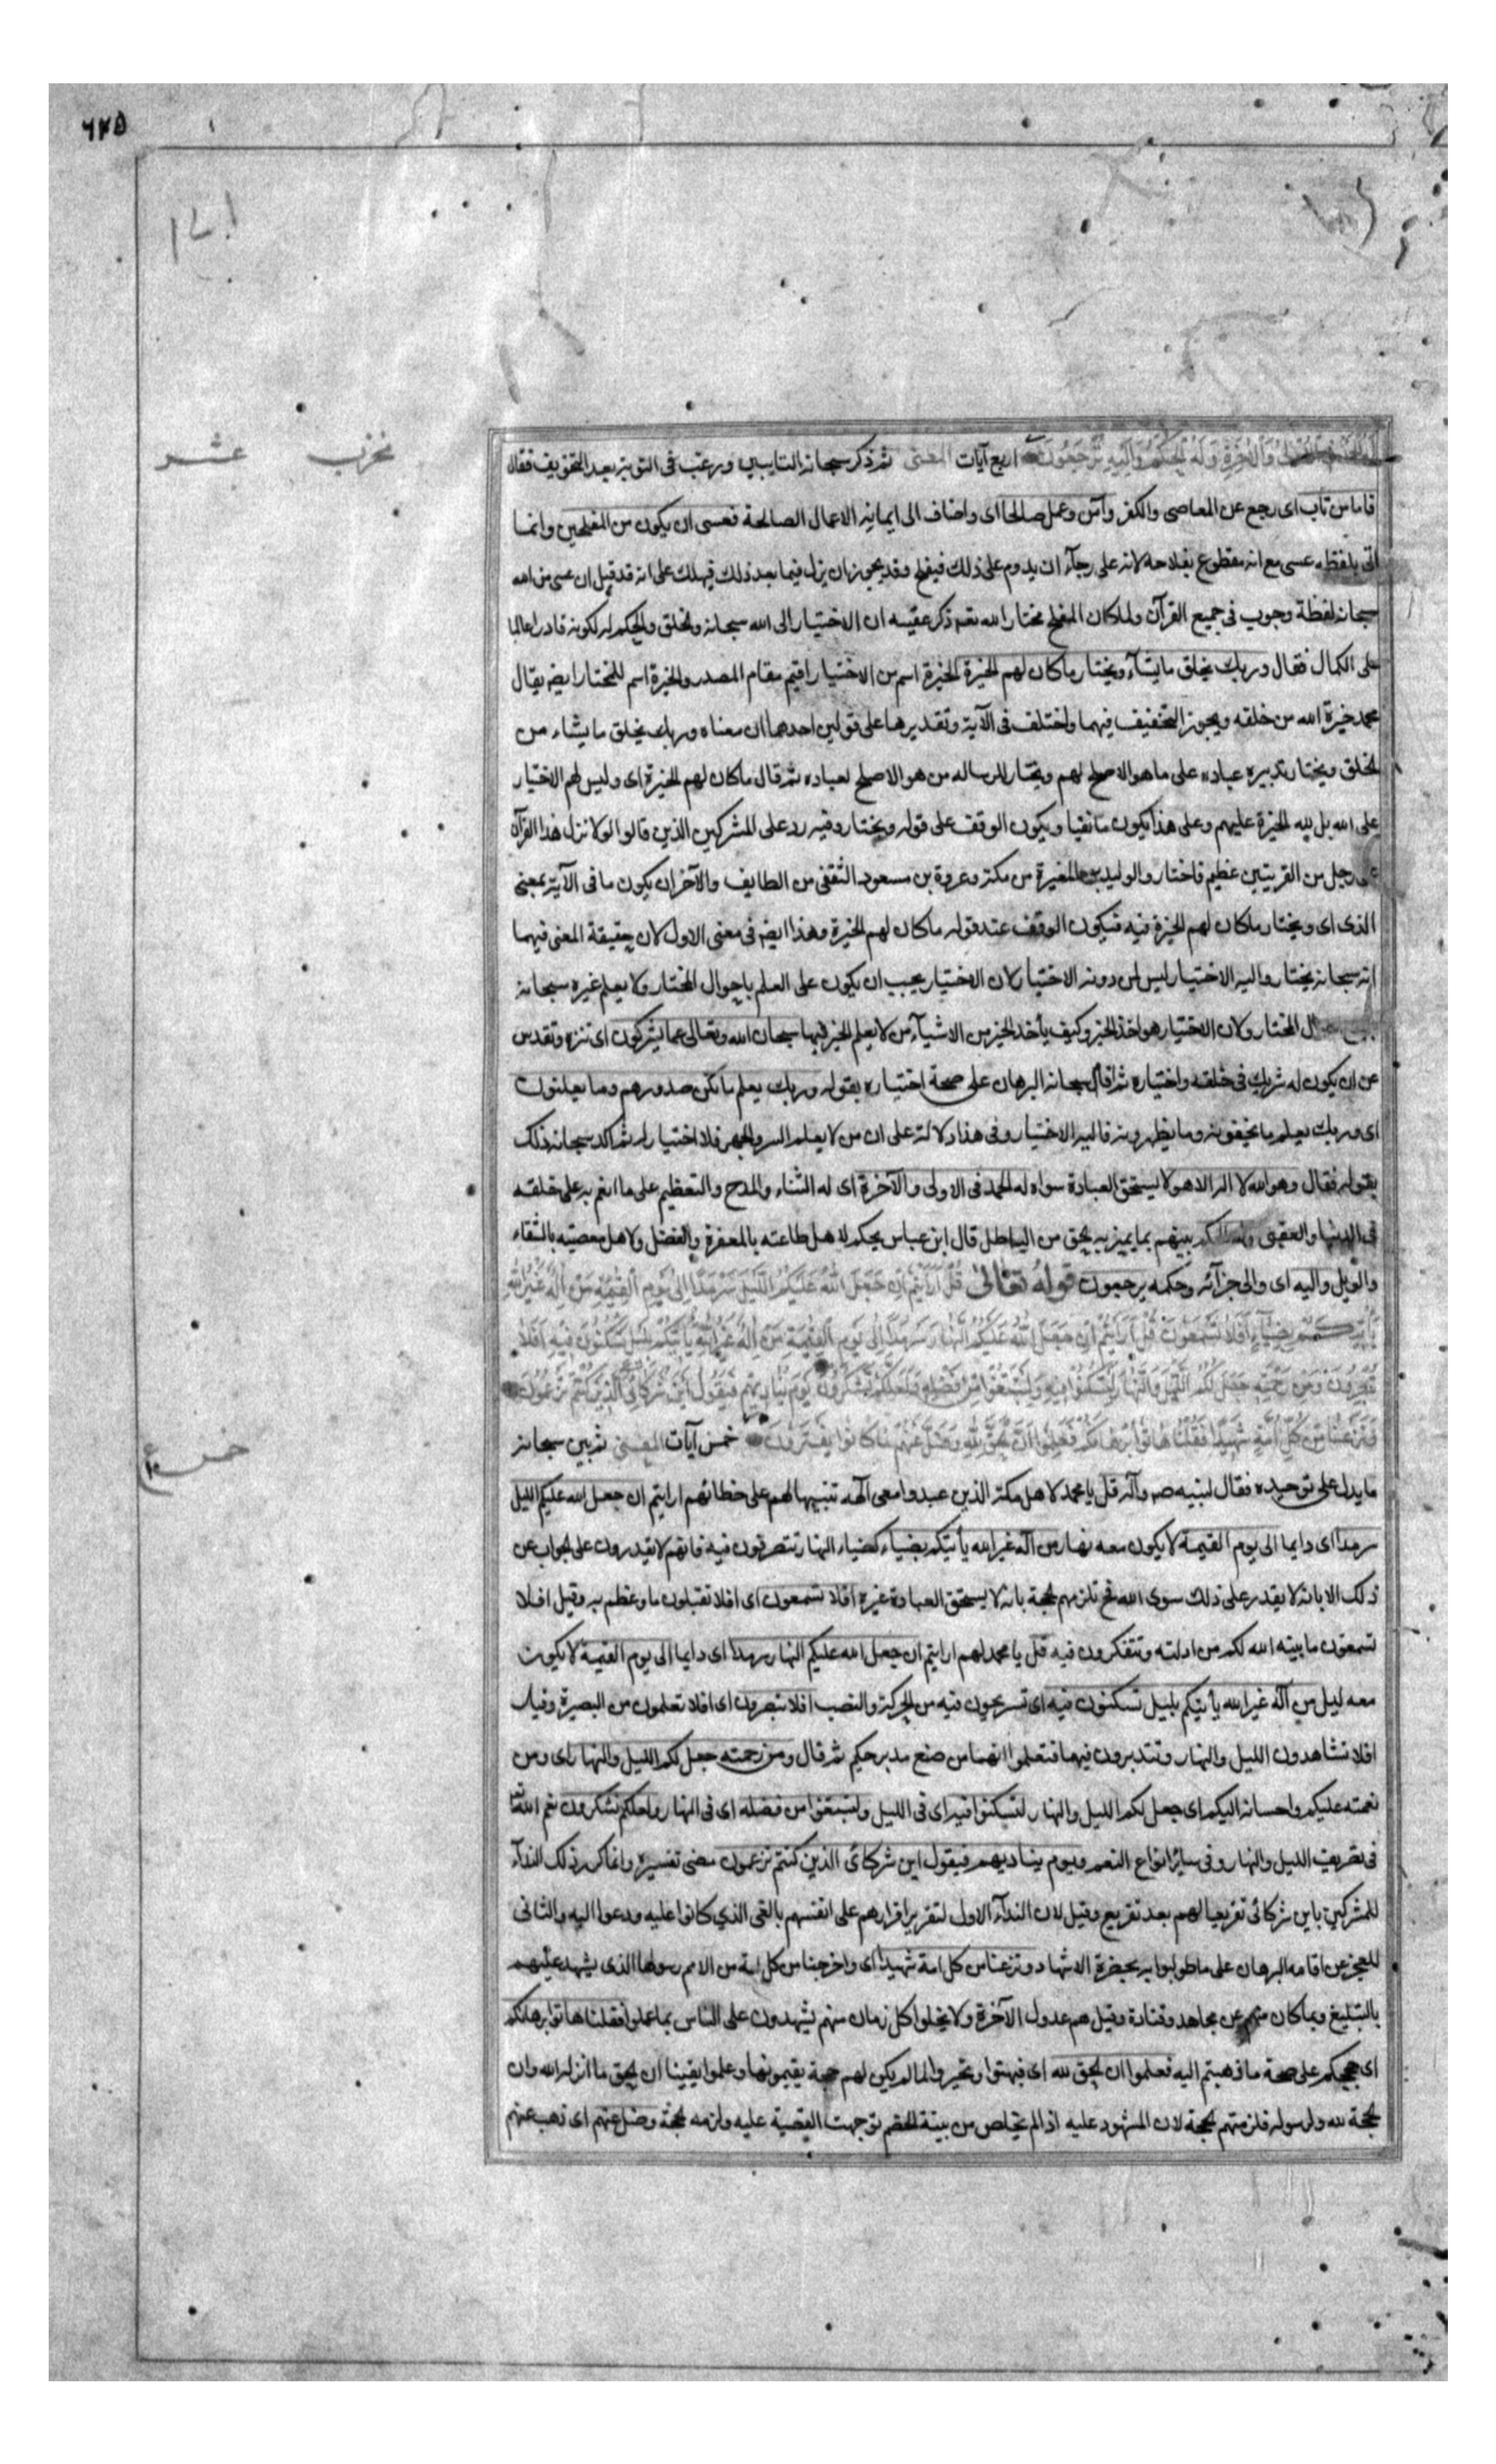 ٦٢٥
لَهُ الْحَمْدُ فِي الْأُولَىٰ وَالْآخِرَةِ وَلَهُ الْحُكْمُ وَإِلَيْهِ تُرْجَعُونَ اربع آيات المعنى ثم ذكر سبحانه التايبين ورغب فى التوبة بعد التخويف فقال
فاما من تاب اى رجع عن المعاصى والكفر وآمن وعمل صالحا اى واضاف الى ايمانه الاعمال الصالحة فعسى ان يكون من المفلحين وانما
اتى بلفظه عسى مع انه مقطوع بفلاحه لانه على رجآء ان يدوم على ذلك فيفلح وقد يجوز ان يزل فيما بعد ذلك فيهلك على انه قد قيل ان عسى من الله
سبحانه لفظة وجوب فى جميع القرآن ولما كان المفلح مختار الله تعم ذكر عقيبه ان الاختيار الى الله سبحانه والخلق والحكم له لكونه قادرا عالما
على الكمال فقال وربك يخلق ما يشآء ويختار ما كان لهم الخيرة الخيرة اسم من الاختيار اقيم مقام المصدر والخيرة اسم للمختار ايضا يقال
محمد خيرة الله من خلقه ويجوز التخفيف فيهما واختلف فى الآية وتقديرها على قولين احدهما ان معناه وربك يخلق ما يشاء من
الخلق ويختار تدبيره عباده على ما هو الاصلح لهم ويختار للرسالة من هو الاصلح لعباده ثم قال ما كان لهم الخيرة اى وليس لهم الاختيار
على الله بل لله الخيرة عليهم وعلى هذا يكون ما نفيا ويكون الوقف على قوله ويختار وفيه رد على المشركين الذين قالوا لولا نزل هذا القرآن
على رجل من القريتين عظيم فاختار والوليد بن المغيرة من مكة وعروة بن مسعود الثقفى من الطايف والآخر ان يكون ما فى الآية بمعنى
الذى اى ويختار ما كان لهم الخيرة فيه فيكون الوقف عند قوله ما كان لهم الخيرة وهذا ايضا فى معنى الاول لان حقيقة المعنى فيهما
انه سبحانه يختار واليه الاختيار ليس لمن دونه الاختيار لان الاختيار يجب ان يكون على العلم باحوال المختار ولا يعلم غيره سبحانه
جميع احوال المختار ولان الاختيار هو اخذ الخير وكيف يأخذ الخير من الاشيآء من لا يعلم الخير فيها سبحان الله وتعالى عما يشركون اى تنزه وتقدس
عن ان يكون له شريك فى خلقه واختياره ثم اقام سبحانه البرهان على صحة اختياره بقوله وربك يعلم ما تكن صدورهم وما يعلنون
اى وربك يعلم ما يخفونه وما يظهرونه فاليه الاختيار وفى هذا دلالة على ان من لا يعلم السر والجهر فلا اختيار له ثم اكد سبحانه ذلك
بقوله فقال وهو الله لا اله الا هو لا يستحق العبادة سواه له الحمد فى الاولى والآخرة اى له الثناء والمدح والتعظيم على ما انعم به على خلقه
فى الدنيا والعقبى وله الحكم بينهم بما يميز به الحق من الباطل قال ابن عباس يحكم لاهل طاعته بالمغفرة والفضل ولاهل معصيته بالشقاء
والويل واليه اى والى جزآئه وحكمه يرجعون قوله تعالى قُلْ أَرَأَيْتُمْ إِنْ جَعَلَ اللَّهُ عَلَيْكُمُ اللَّيْلَ سَرْمَدًا إِلَىٰ يَوْمِ الْقِيَٰمَةِ مَنْ إِلَٰهٌ غَيْرُ اللَّهِ
يَأْتِيكُمْ بِضِيَآءٍ أَفَلَا تَسْمَعُونَ قُلْ أَرَأَيْتُمْ إِنْ جَعَلَ اللَّهُ عَلَيْكُمُ النَّهَارَ سَرْمَدًا إِلَىٰ يَوْمِ الْقِيَٰمَةِ مَنْ إِلَٰهٌ غَيْرُ اللَّهِ يَأْتِيكُمْ بِلَيْلٍ تَسْكُنُونَ فِيهِ أَفَلَا
تُبْصِرُونَ وَمِنْ رَحْمَتِهِ جَعَلَ لَكُمُ اللَّيْلَ وَالنَّهَارَ لِتَسْكُنُوا فِيهِ وَلِتَبْتَغُوا مِنْ فَضْلِهِ وَلَعَلَّكُمْ تَشْكُرُونَ وَيَوْمَ يُنَادِيهِمْ فَيَقُولُ أَيْنَ شُرَكَائِيَ الَّذِينَ كُنْتُمْ تَزْعُمُونَ
وَنَزَعْنَا مِنْ كُلِّ أُمَّةٍ شَهِيدًا فَقُلْنَا هَاتُوا بُرْهَانَكُمْ فَعَلِمُوا أَنَّ الْحَقَّ لِلَّهِ وَضَلَّ عَنْهُمْ مَا كَانُوا يَفْتَرُونَ خمس آيات المعنى ثم بين سبحانه
ما يدل على توحيده فقال لنبيه صم وآله قل يا محمد لاهل مكة الذين عبدوا معى آلهة تنبيها لهم على خطائهم ارايتم ان جعل الله عليكم الليل
سرمدا اى دايما الى يوم القيمة لا يكون معه نهار من اله غير الله يأتيكم بضياء كضياء النهار تتصرفون فيه فانهم لا يقدرون على الجواب عن
ذلك الا بانه لا يقدر على ذلك سوى الله فح تلزمهم الحجة بانه لا يستحق العبادة غيره افلا تسمعون اى افلا تقبلون ما وعظتم به وقيل افلا
تسمعون ما بينه الله لكم من ادلته وتتفكرون فيه قل يا محمد لهم ارايتم ان جعل الله عليكم النهار سرمدا اى دايما الى يوم القيمة لا يكون
معه ليل من اله غير الله يأتيكم بليل تسكنون فيه اى تستريحون فيه من الحركة والنصب افلا تبصرون اى افلا تعلمون من البصيرة وقيل
افلا تشاهدون الليل والنهار وتتدبرون فيهما فتعلموا انهما من صنع مدبر حكيم ثم قال ومن رحمته جعل لكم الليل والنهار اى ومن
نعمته عليكم واحسانه اليكم اى جعل لكم الليل والنهار لتسكنوا فيه اى فى الليل ولتبتغوا من فضله اى فى النهار ولعلكم تشكرون نعم الله
فى تصريف الليل والنهار وفى ساير انواع النعم ويوم يناديهم فيقول اين شركائى الذين كنتم تزعمون مضى تفسيره وانما كرر ذلك الندآء
للمشركين باين شركائى تقريعا لهم بعد تقريع وقيل لان الندآء الاول لتقرير اقرارهم على انفسهم بالغى الذى كانوا عليه ودعوا اليه والثانى
للعجز عن اقامة البرهان على ما طولبوا به بحضرة الاشهاد ونزعنا من كل امة شهيدا اى واخرجنا من كل امة من الامم رسولها الذى يشهد عليهم
بالتبليغ وبما كان منهم عن مجاهد وقتادة وقيل هم عدول الآخرة ولا يخلوا كل زمان منهم يشهدون على الناس بما عملوا فقلنا هاتوا برهانكم
اى حجتكم على صحة ما ذهبتم اليه فعلموا ان الحق لله اى فبهتوا وتحيروا لما لم يكن لهم حجة يقيمونها وعلموا يقينا ان الحق ما انزله الله وان
الحجة لله ولرسوله فلزمتهم الحجة لان المشهود عليه اذا لم يتخلص من بينة الخصم توجهت القضية عليه ولزمه الحجة وضل عنهم اى ذهب عنهم
عشر
خمس